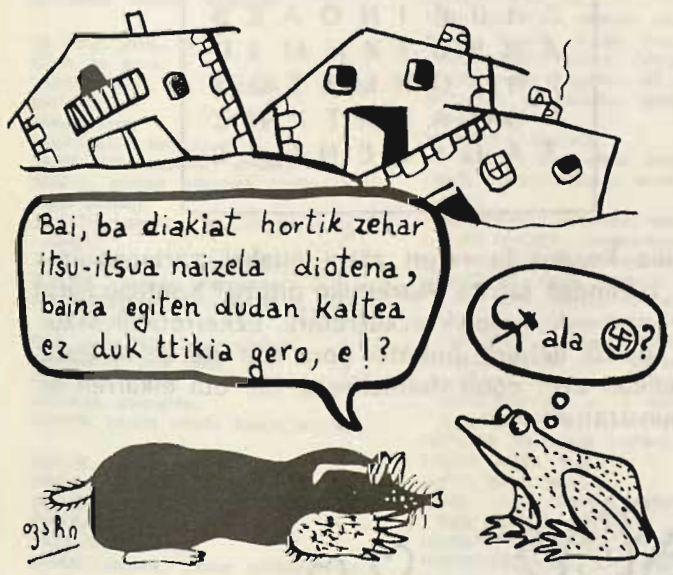 Bai, ba diakiat hortik zehar
itsu-itsua naizela diotena,
baina egiten dudan kaltea
ez duk ttikia gero, e!?
ala ?